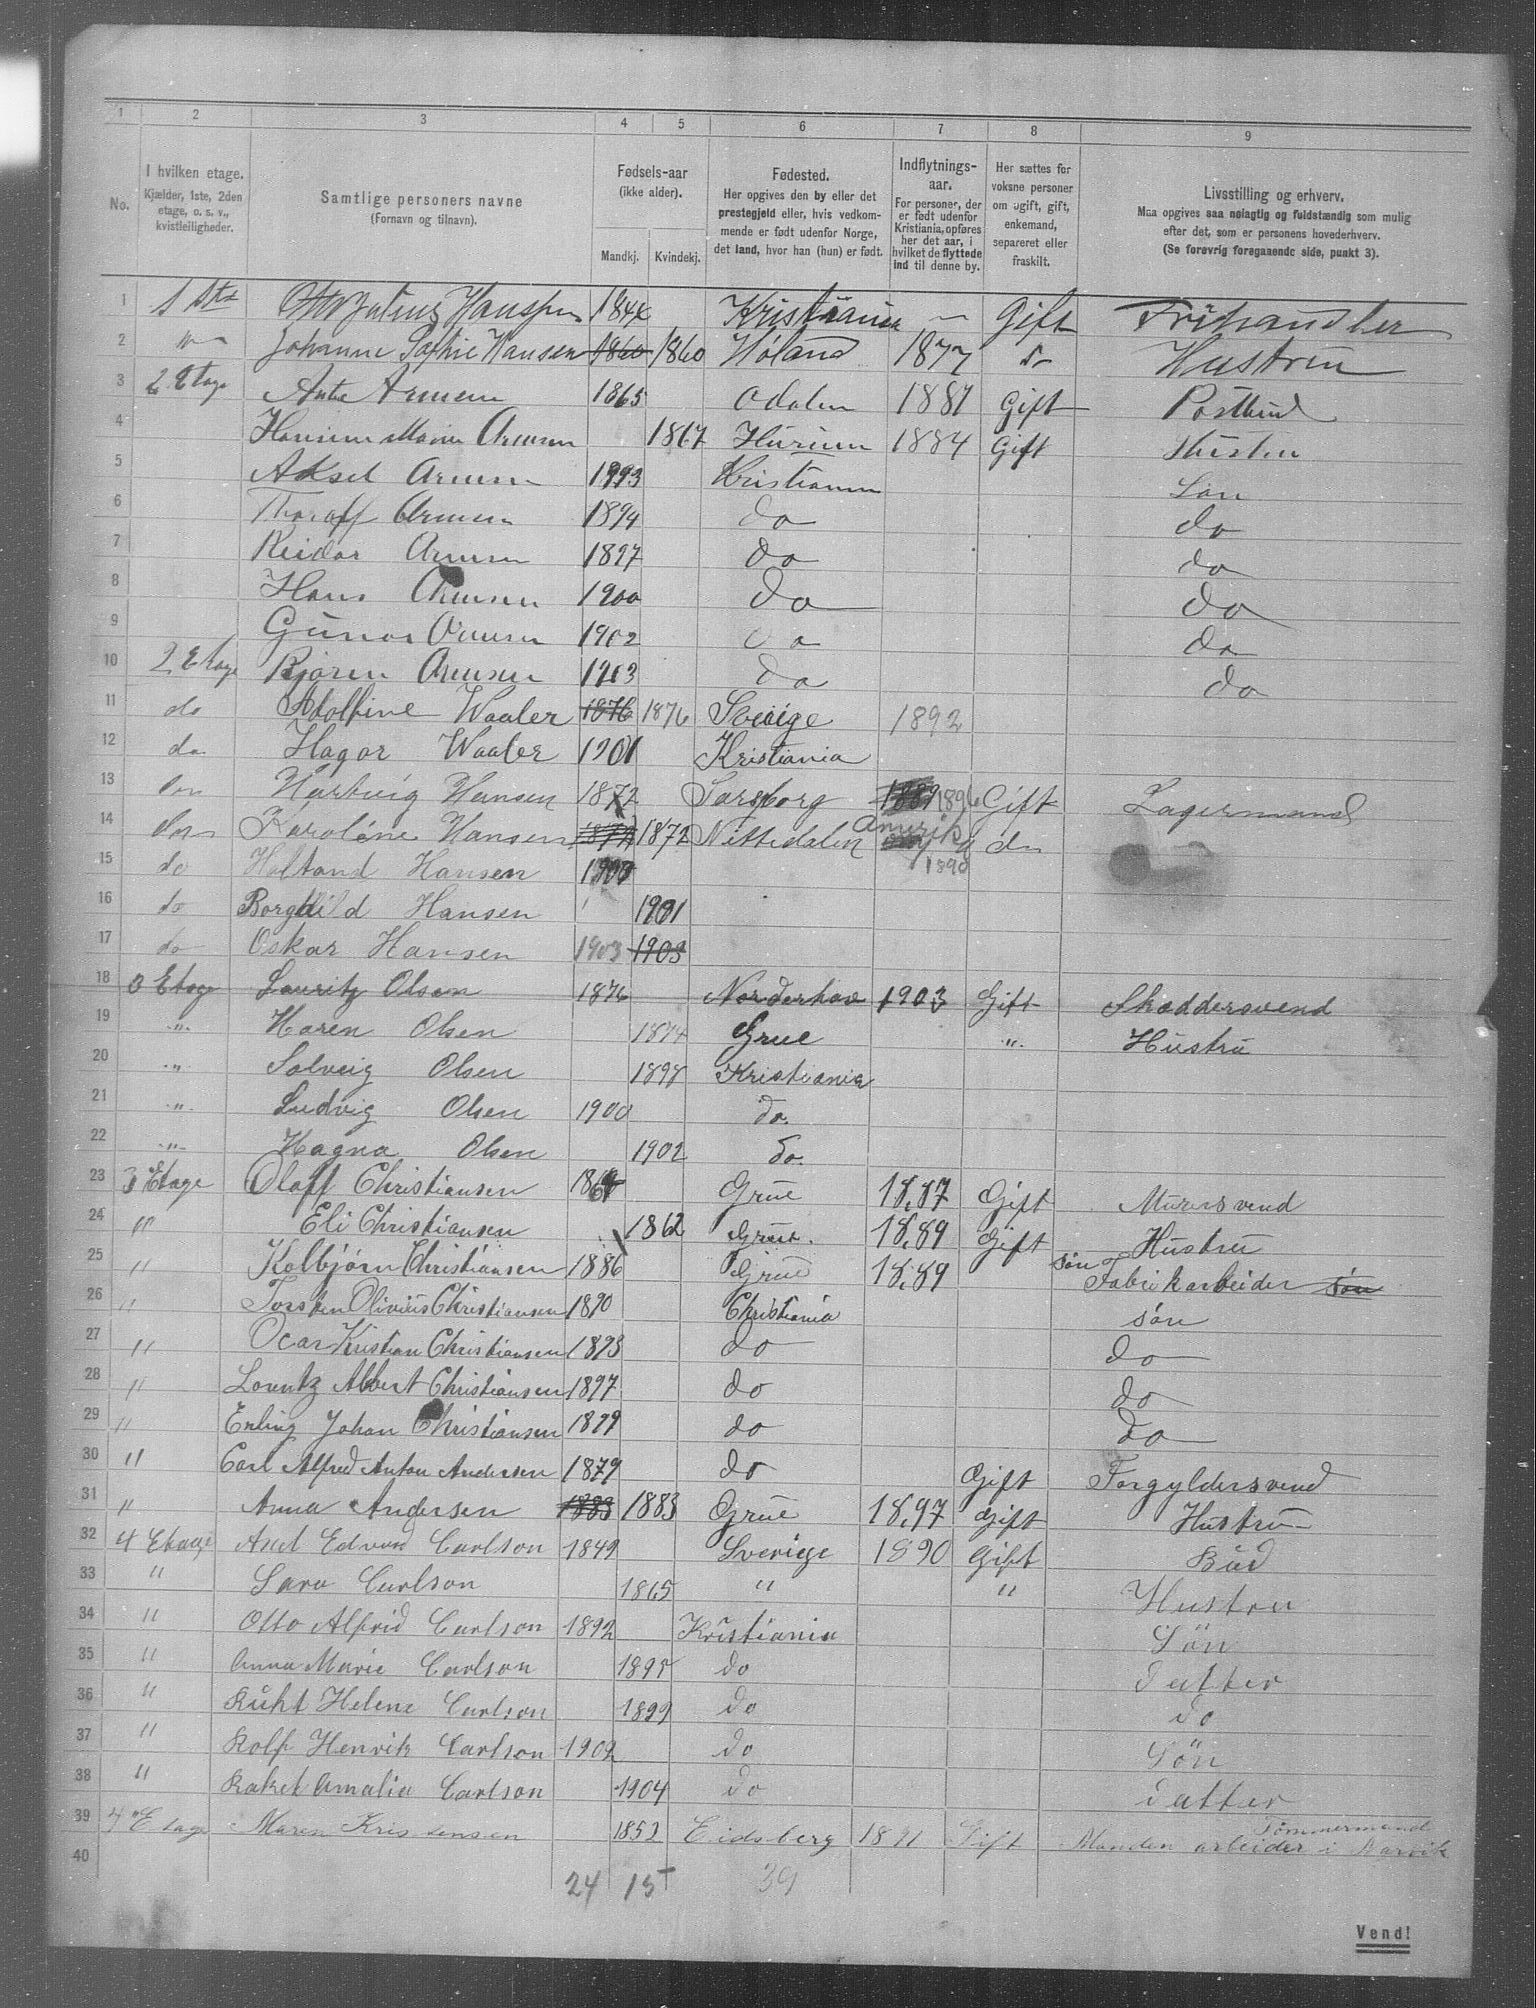 1 2 3 4 5 6 7 8 9
No.
I hvilken etage. Kjælder, 1ste, 2den etage, o. s. v., kvistleiligheder.
Samtlige personers navne (Fornavn og tilnavn).
Fødsels-aar (ikke alder). Mandkj. Kvindekj.
Fødested. Her opgives den by eller det prestegjeld eller, hvis vedkommende er født udenfor Norge, det land, hvor han (hun) er født.
Indflytnings-aar. For personer, der er født udenfor Kristiania, opføres her det aar, i hvilket de flyttede ind til denne by.
Her sættes for voksne personer om ugift, gift, enkemand, separeret eller fraskilt.
Livsstilling og erhverv. Maa opgives saa nøiagtig og fuldstændig som mulig efter det, som er personens hovederhverv. (Se forøvrig foregaaende side, punkt 3).
1 1 Ste Otto Julius Hanssen 1844 Kristiania — Gift Frihandler
2 Johanne Sophie Hansen 1860 1860 Høland 1877 Hustru
3 2 Etage Arnesen 1865 Odalen 1887 Gift Postbud
4 Marie Arnesen 1867 Hurum 1884 Gift Hustru
5 Aksel Arnesen 1893 Kristiania Søn
6 Thoralf Arnesen 1894 do do
7 Reidar Arnesen 1897 do do
8 Hans Arnesen 1900 do do
9 Gunnar Arnesen 1902 do do
10 2 Etage Bjørn Arnesen 1903 do do
11 do Adolfine Waaler 1876 1876 Sverige 1892
12 do Hagar Waaler 1901 Kristiania
13 do Hartvig Hansen 1872 Sarpborg 1889 1896 Gift Lagermand
14 do Karoline Hansen 1872 1872 Nittedalen Amerika 1890 do
15 do Hansen 1900
16 do Borghild Hansen 1901
17 do Oskar Hansen 1903 1903
18 3 Etage Lauritz Olsen 1876 Norderhov 1903 Gift Skræddersvend
19 " Karen Olsen 1874 Grue " Hustru
20 " Solveig Olsen 1898 Kristiania
21 " Ludvig Olsen 1900 do.
22 " Magna Olsen 1902 do.
23 3 Etage Olaff Christiansen Grue 18,87 Gift Murersvend
24 " Eli Christiansen 1862 Grue. 18,89 Gift Hustru
25 " Kolbjørn Christiansen 1886 Grue 18,89 søn Fabrikarbeider søn
26 " Torsten Olivius Christiansen 1890 Christiania søn
27 " Ocar Kristian Christiansen 1893 do do
28 " Lorentz Albert Christiansen 1897 do do
29 " Erling Johan Christiansen 1899 do do
30 " Carl Alfred Anton Andersen 1879 do Gift Forgyldersvend
31 " Anna Andersen 1883 1883 Grue 18,97 Gift Hustru
32 4 Etage Axel Edvard Carlson 1849 Sverige 1890 Gift Bud
33 " Sara Carlson 1865 " " Hustru
34 " Otto Alfrid Carlson 1892 Kristiania Søn
35 " Anna Marie Carlson 1895 do Datter
36 " Ruht Helene Carlson 1899 do do
37 " Rolf Henrik Carlson 1902 do Søn
38 " Rakel Amalia Carlson 1904 do datter
39 4 Etage Maren Kristensen 1852 Eidsberg 1891 Gift Manden arbeider i Narvik Tømmermand
40
24 15 39
Vend!